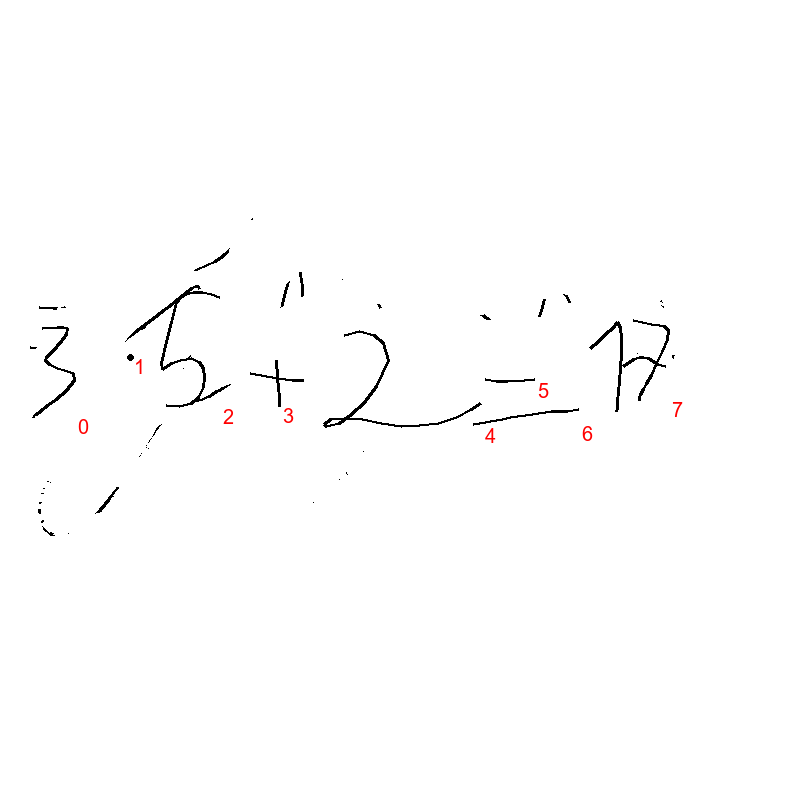 3 · 5 + 2 = 17
0 1 2 3 4 5 6 7